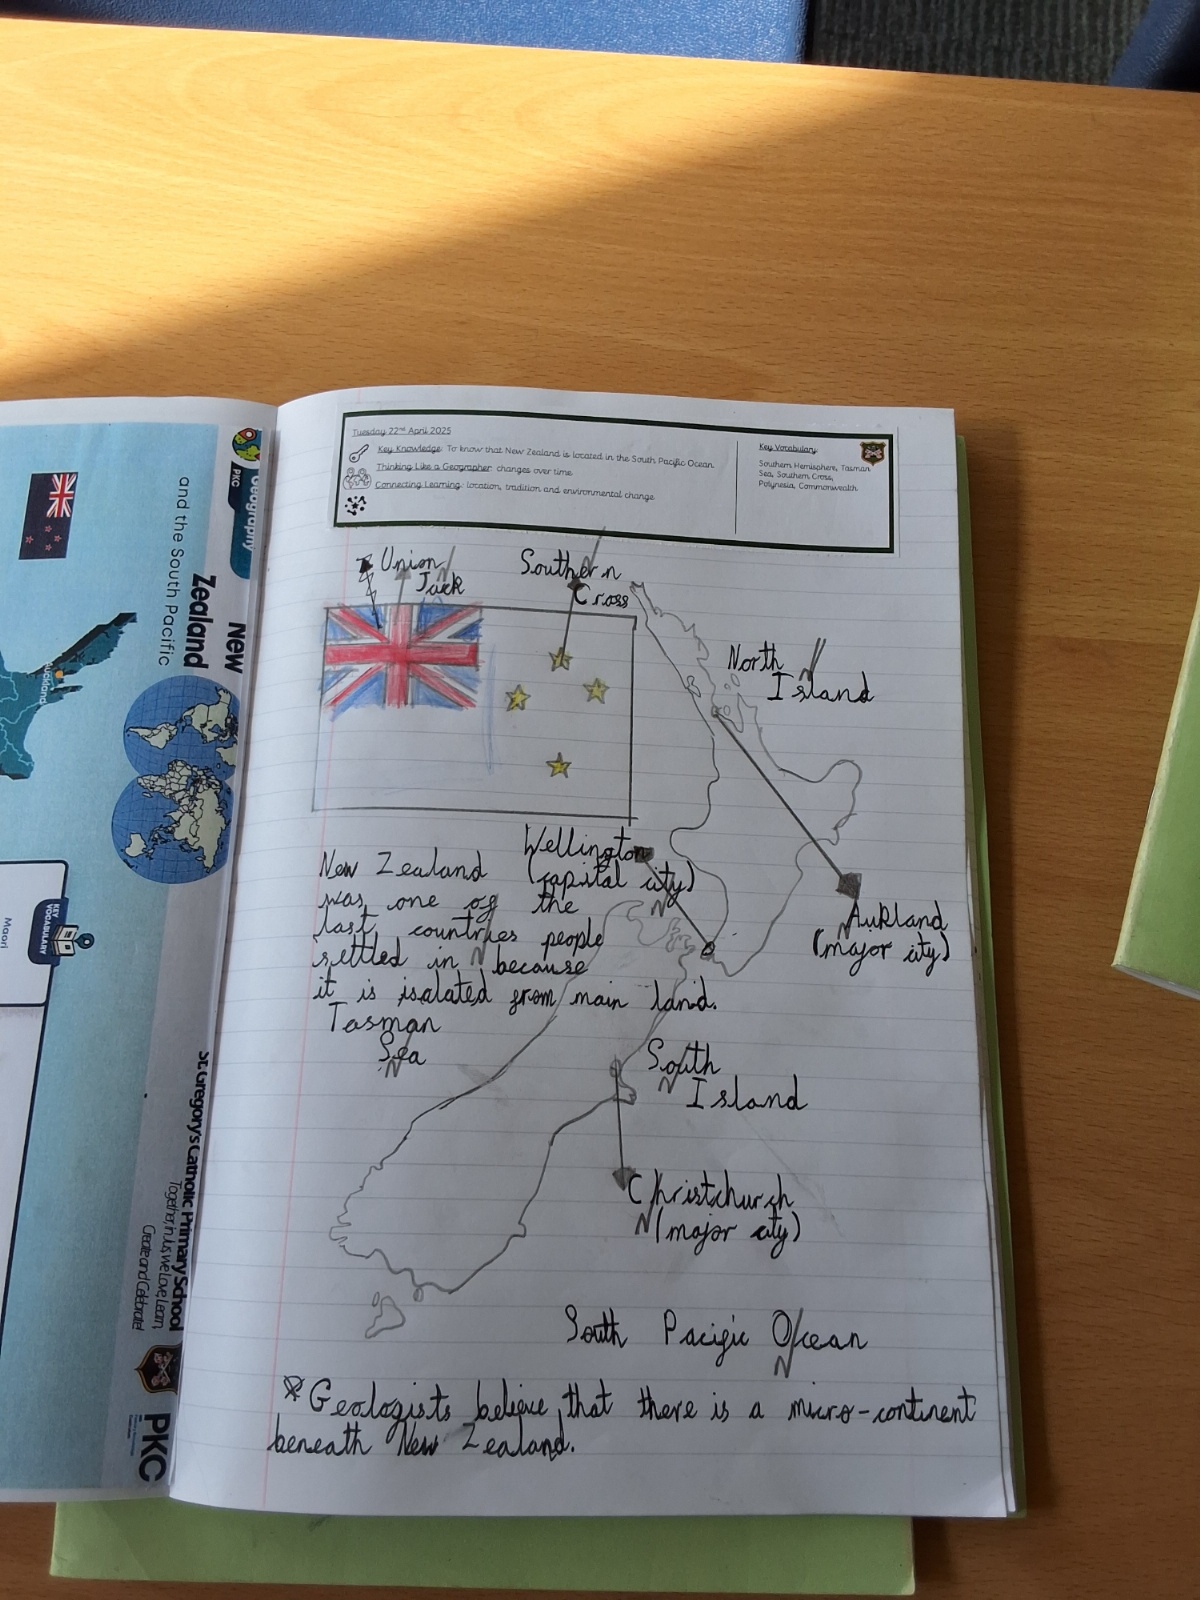 Geography
PKC
New
Zealand
and the South Pacific
Auckland
KEY
VOCABULARY
Maori
St. Gregory's Catholic Primary School
Together, in Jesus, we Love, Learn,
Create and Celebrate!
PKC
Tuesday 22nd April 2025
Key Knowledge: To know that New Zealand is located in the South Pacific Ocean
Thinking Like a Geographer: changes over time
Connecting Learning: location, tradition and environmental change
Key Vocabulary
Southern Hemisphere, Tasman
Sea, Southern Cross,
Polynesia, Commonwealth
Union
Jack
Southern
Cross
North
Island
Wellington
(capital city)
New Zealand
was one of the
last countries people
settled in because
it is isalated from main land.
Aukland
(major city)
Tasman
Sea
South
Island
Christchurch
(major city)
South Pacific Ocean
Geologists believe that there is a micro-continent
beneath New Zealand.